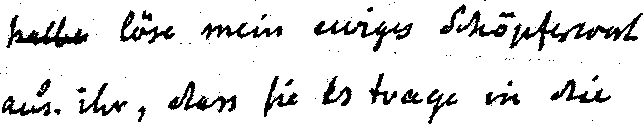 halbe löse mein ewiges Schöpferwort
aus ihr, dass sie es trage in die